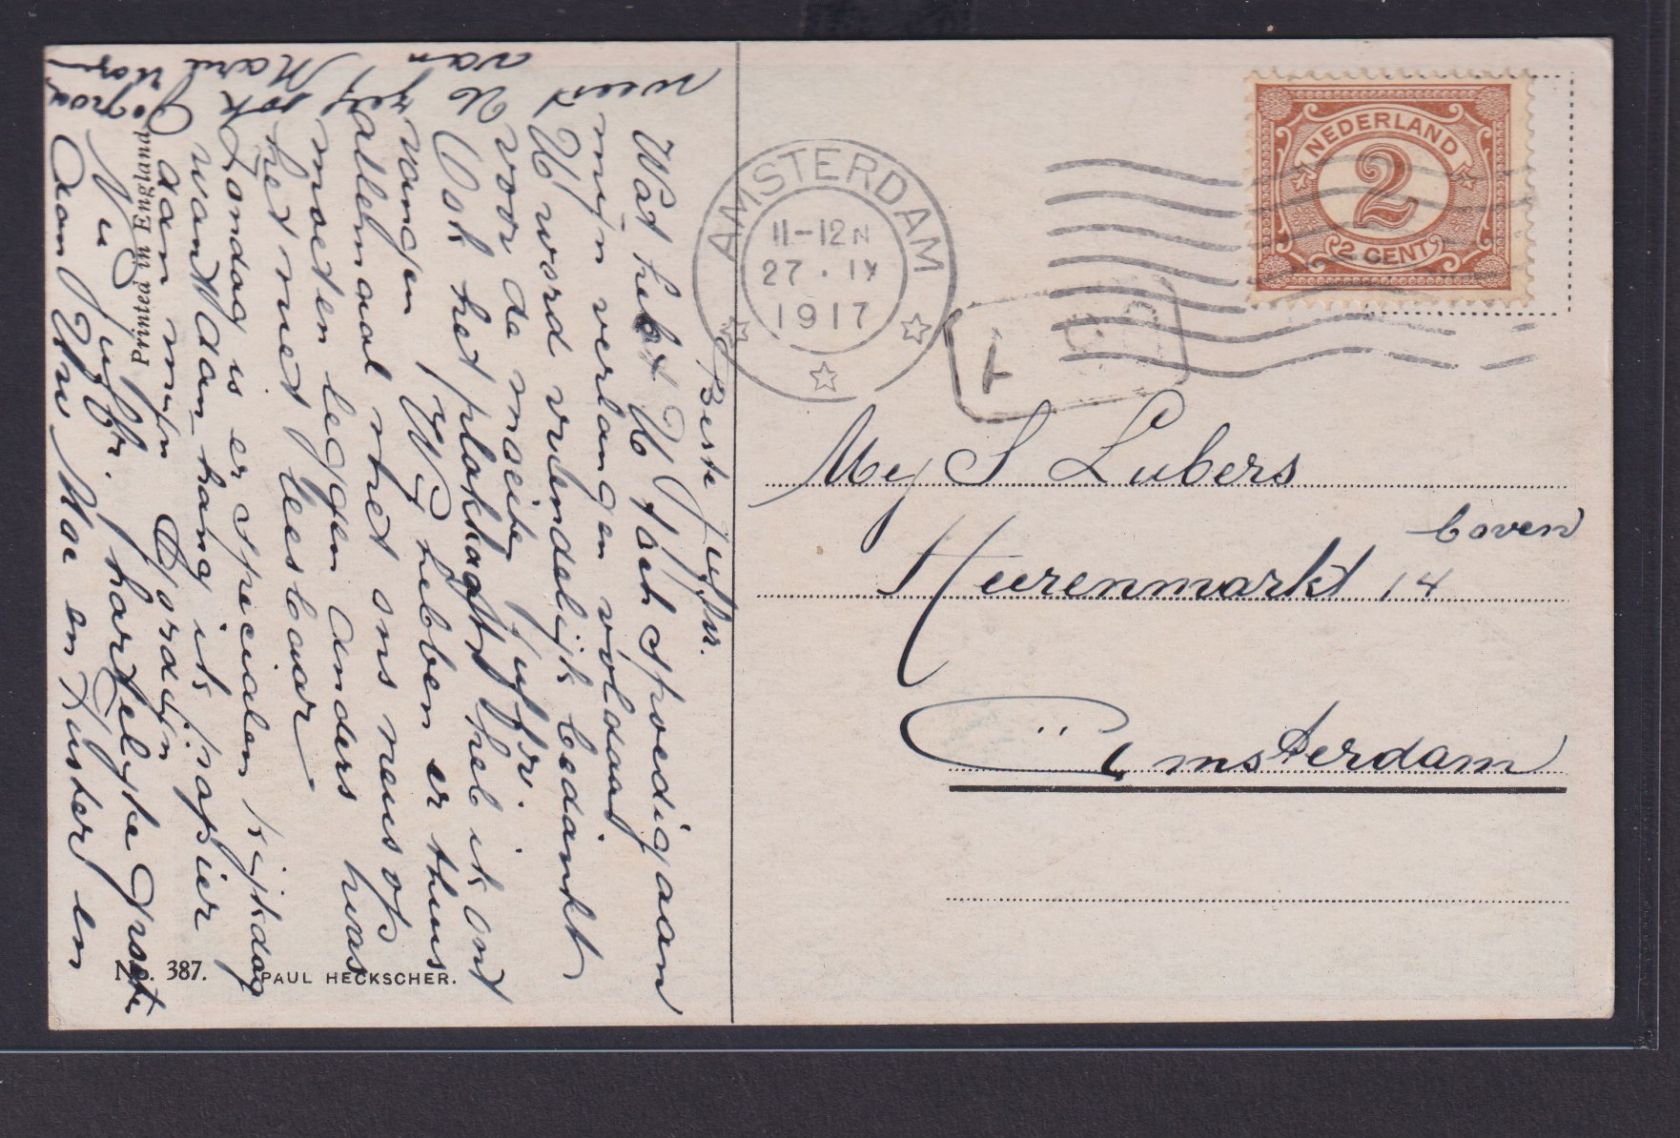 Beste Juffr.
Wat hebt U toch spoedig aan
mijn verlangen voldaan
U word vriendelijk bedankt
voor de moeite Juffr.
Ook het plakkaatt heb ik ont
vangen Wij hebben er thuis
allemaal met ons neus op
moeten leggen anders was
het niet leesbaar
Zondag is er specialen kijkdag
want dan hang ik papier
dan mijn
Nu juffr. hartelijke Groete
aan Uw Moe en Zuster en
weest
U
van
zelf ook
van
Marie
Printed in England
No. 387.
PAUL HECKSCHER.
AMSTERDAM
11-12 N
27 · IX
1917
T
NEDERLAND
2
2 CENT
Mej S Lubers
boven
Heerenmarkt 14
Amsterdam